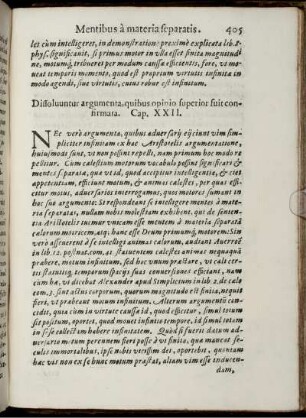 Mentibus à materia separatis. 405
let cum intelligeret, in demonstratione proximè explicata lib. 8.
phys. significasse, si primus motor in vlla esset finita magnitudi
ne, motumq́; tribueret per modum caussa efficientis, fore, vt mo
ueat temporis momento, quod est proprium virtutis infinita in
modo agendi, siue virtutis, cuius robur est infinitum.
Dissoluuntur argumenta, quibus opinio superior fuit con-
firmata. Cap. XXII.
NEC verò argumenta, quibus aduersarij eijciunt vim sim-
pliciter infinitam ex hac Aristotelis argumentatione,
huiusmodi sunt, vt non possint repelli, nam primum hoc modo re
pellitur. Cum caelestium motorum vocabula possint significari &
mentes separatae, quae vt id, quod accipitur intelligentia, & eius
appetentium, efficiunt motum, & anima caelestes, per quas effici
tur motus, aduersarios interrogamus, quos motores sumant in
hac sua argumentatione. Si respondeant se intelligere mentes à ma-
teria separatas, nullam nobis molestiam exhibent. qui de senten-
tia Aristotelis animo vnicum esse motorem à materia separatum
calorum miserescem, atq́; hunc esse Deum primumq́; motorem. Sin
verò asseuerent se intelligi animas caelorum, audiant Auerroē
in lib. 12. post text. com. 41. statuentem caelestes animas nequaquā
praebere, motum infinitum, sed hoc vnum praestare, vt cali cer-
tis statutisq́; temporum spacijs suas conuersiones efficiant, nam
cum ha, vt dicebat Alexander apud Simplicium in lib. 2. de calo
com. 2. sint actus corporum, quorum magnitudo est finita, nequit
fieri, vt probeant motum infinitum. Alterum argumentum con-
cidit, quia cùm in virtute caussa id, quod efficitur, simul totum
sit positum, oportet, quod mouet infinito tempore, id simul totum
in se se collectum habere infinitatem. Quod si fuerit datum ad-
uersarijs motum perennem fieri posse à vi finita, quae maneat se
culis immortalibus, ipsi nobis vicissim det, oportebit, quoniam
hac vis non ex se hunc motum praestat, aliam vim esse inducen-
dam,